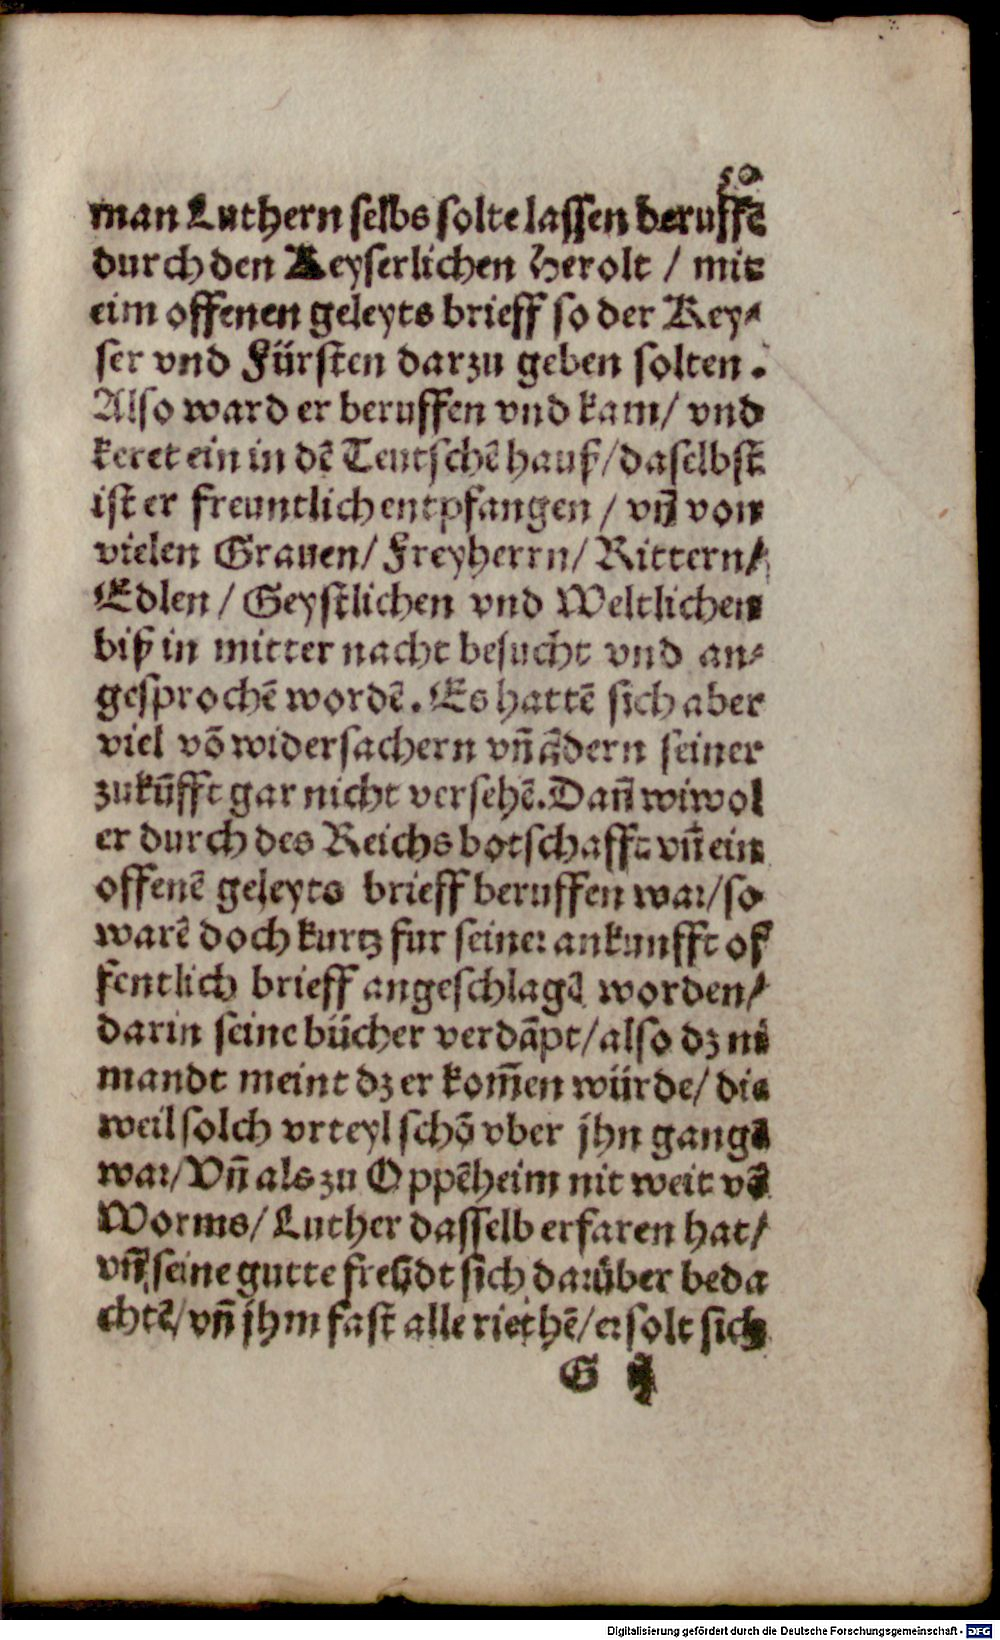 50
man Luthern selbs solte lassen beruffẽ
durch den Keyserlichen Herolt / mit
eim offenen geleyts brieff so der Key⸗
ser vnd Fürsten darzu geben solten.
Also ward er beruffen vnd kam/ vnd
keret ein in dẽ Teutschẽ hauß/ daselbst
ist er freuntlich entpfangen / vñ von
vielen Grauen/ Freyherrn/ Rittern/
Edlen/ Geystlichen vnd Weltlichen
biß in mitter nacht besucht vnd an⸗
gesprochẽ wordẽ. Es hattẽ sich aber
viel võ widersachern vñ ãdern seiner
zukũfft gar nicht versehẽ. Dañ wiwol
er durch des Reichs botschafft vñ ein
offenẽ geleyts brieff beruffen war/ so
warẽ doch kurtz fur seiner ankunfft of
fentlich brieff angeschlagẽ worden/
darin seine bücher verdãpt/ also dz ni
mandt meint dz er kom̃en würde/ die
weil solch vrteyl schõ vber jhn gangẽ
war/ Vñ als zu Oppẽheim nit weit võ
Worms/ Luther dasselb erfaren hat/
vñ seine gutte freũdt sich darüber beda
chtẽ/ vñ jhm fast alle riethẽ/ er solt sich
G ij
Digitalisierung gefördert durch die Deutsche Forschungsgemeinschaft - DFG